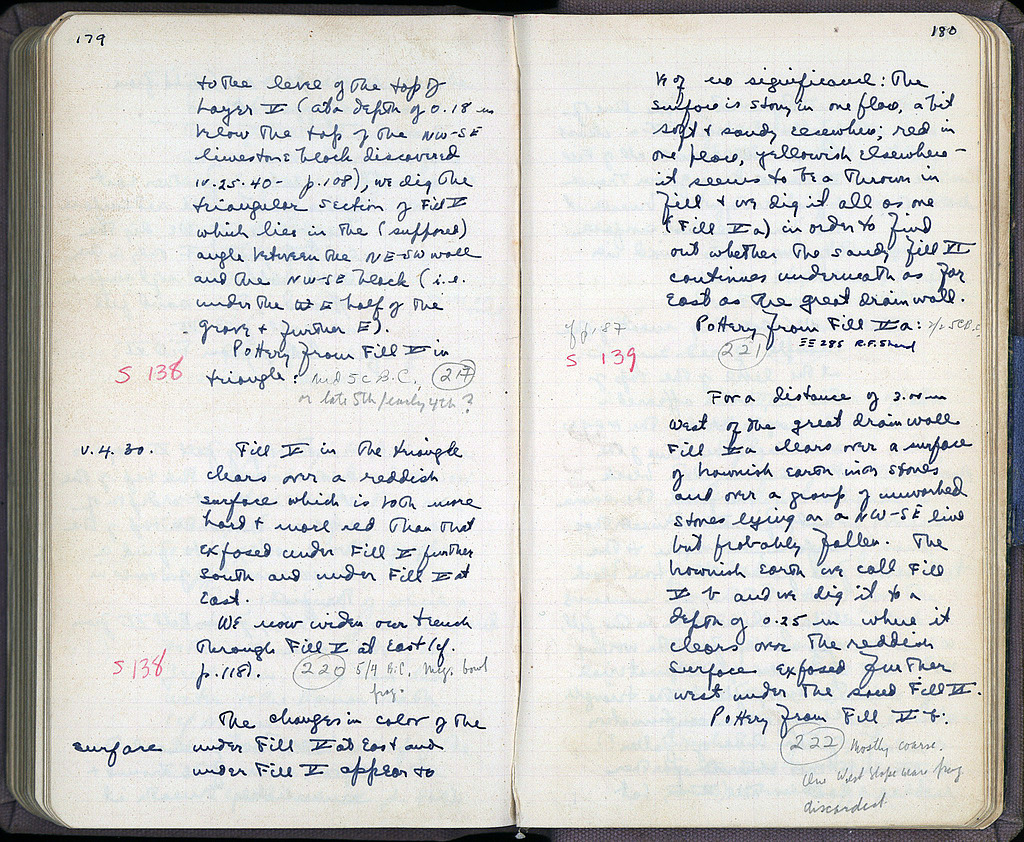 179
to the level of the top of
Layer V (at a depth of 0.18 m
below the top of the NW-SE
limestone block discovered
IV.25.40 - p.108), we dig the
triangular section of Fill V
which lies in the (supposed)
angle between the NE-SW wall
and the NW-SE block (i.e.
under the E half of the
grave & further E).
Pottery from Fill V in
S 138
triangle: mid 5 c B.C. 219
or late 5th/early 4th ?
V.4.30. Fill V in the triangle
clears over a reddish
surface which is both more
hard & more red than that
exposed under Fill V further
South and under Fill V at
East.
We now widen our trench
through Fill V at East (cf.
S 138
p.118). 220 5/4 B.C. Meg. bowl
frg.
The changes in color of the
surface under Fill V at East and
under Fill V appear to
180
be of no significance: The
surface is stony in one place, a bit
soft & sandy elsewhere; red in
one place, yellowish elsewhere –
it seems to be a thrown in
fill & we dig it all as one
(Fill V a) in order to find
out whether the sandy fill VI
continues underneath as far
East as the great drain wall.
cf p. 187
Pottery from Fill V a: 2/2 5 C B.C.
S 139
221 285 R.F. Sherd
For a distance of m
West of the great drain wall
Fill V a clears over a surface
of brownish earth stones
and over a group of unworked
stones lying on a NW-SE line
but probably fallen. The
brownish earth we call Fill
V b and we dig it to a
depth of 0.25 m where it
clears over the reddish
surface exposed further
west under the sand Fill VI.
Pottery from Fill V b.
222 Mostly coarse.
One West Slope ware frg.
discarded